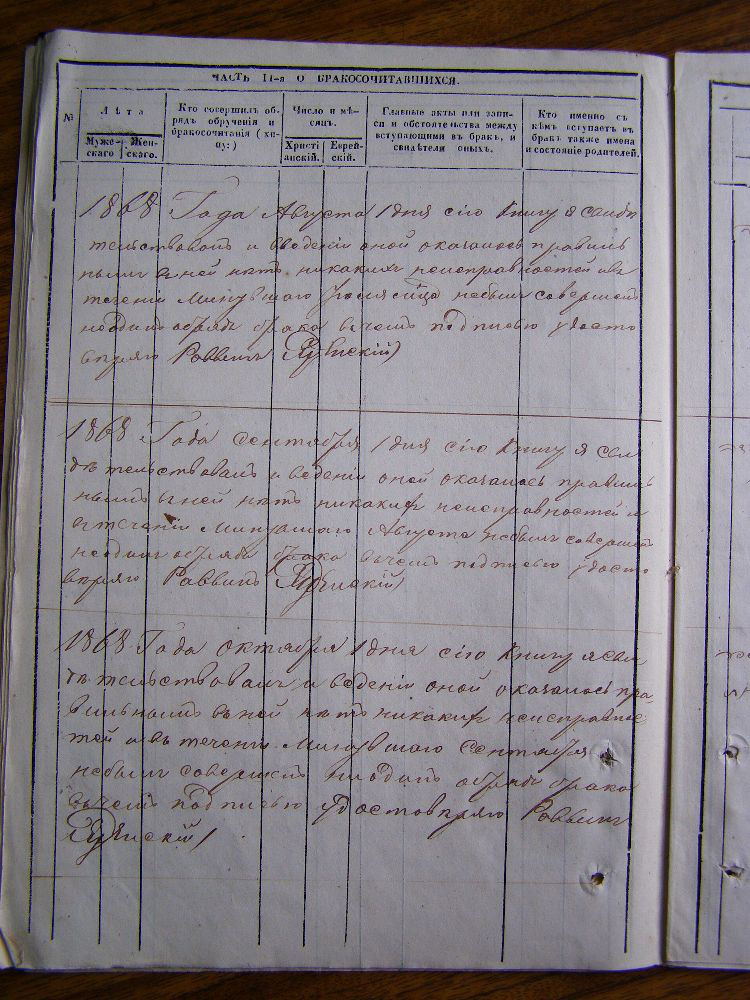 ЧАСТЬ II-я О БРАКОСОЧИТАВШИХСЯ.
№
Лѣта
Муже-
скаго
Жен-
скаго.
Кто совершилъ об-
рядъ обрученія и
бракосочитанія (хи-
пу:)
Число и мѣ-
сяцъ.
Христі
анскій.
Еврей-
скій.
Главные акты или запи-
си и обстоятельства между
вступающими въ бракъ, и
свидѣтели оныхъ.
Кто именно съ
кѣмъ вступаетъ въ
бракъ также имена
и состояніе родителей.
1868 Года Августа 1 дня сію Книгу я свидѣ
тельствовалъ и введеніи оной оказалось правиль
нымъ въ ней нѣтъ никакихъ неисправностей и въ
теченіи минувшаго мѣсяца небылъ совершонъ
неодинъ обрядъ брака въ чемъ подписью удосто
вѣряю Раввинъ
1868 Года сентября 1 дня сію Книгу я сви
дѣтельствовалъ и веденіи оной оказалось правиль
нымъ въ ней нѣтъ никакихъ неисправностей и
въ теченіи минувшаго Августа небылъ совершонъ
неодинъ обрядъ брака въ чемъ подписью удосто
вѣряю Раввинъ
1868 Года октября 1 дня сію Книгу я сви
дѣтельствовалъ и веденіи оной оказалось пра-
вильнымъ въ ней нѣтъ никакихъ неисправнос-
тей и въ теченіи минувшаго Сентября
небылъ совершонъ ниодинъ обрядъ брака
въ чемъ подписью удостовѣряю Раввинъ